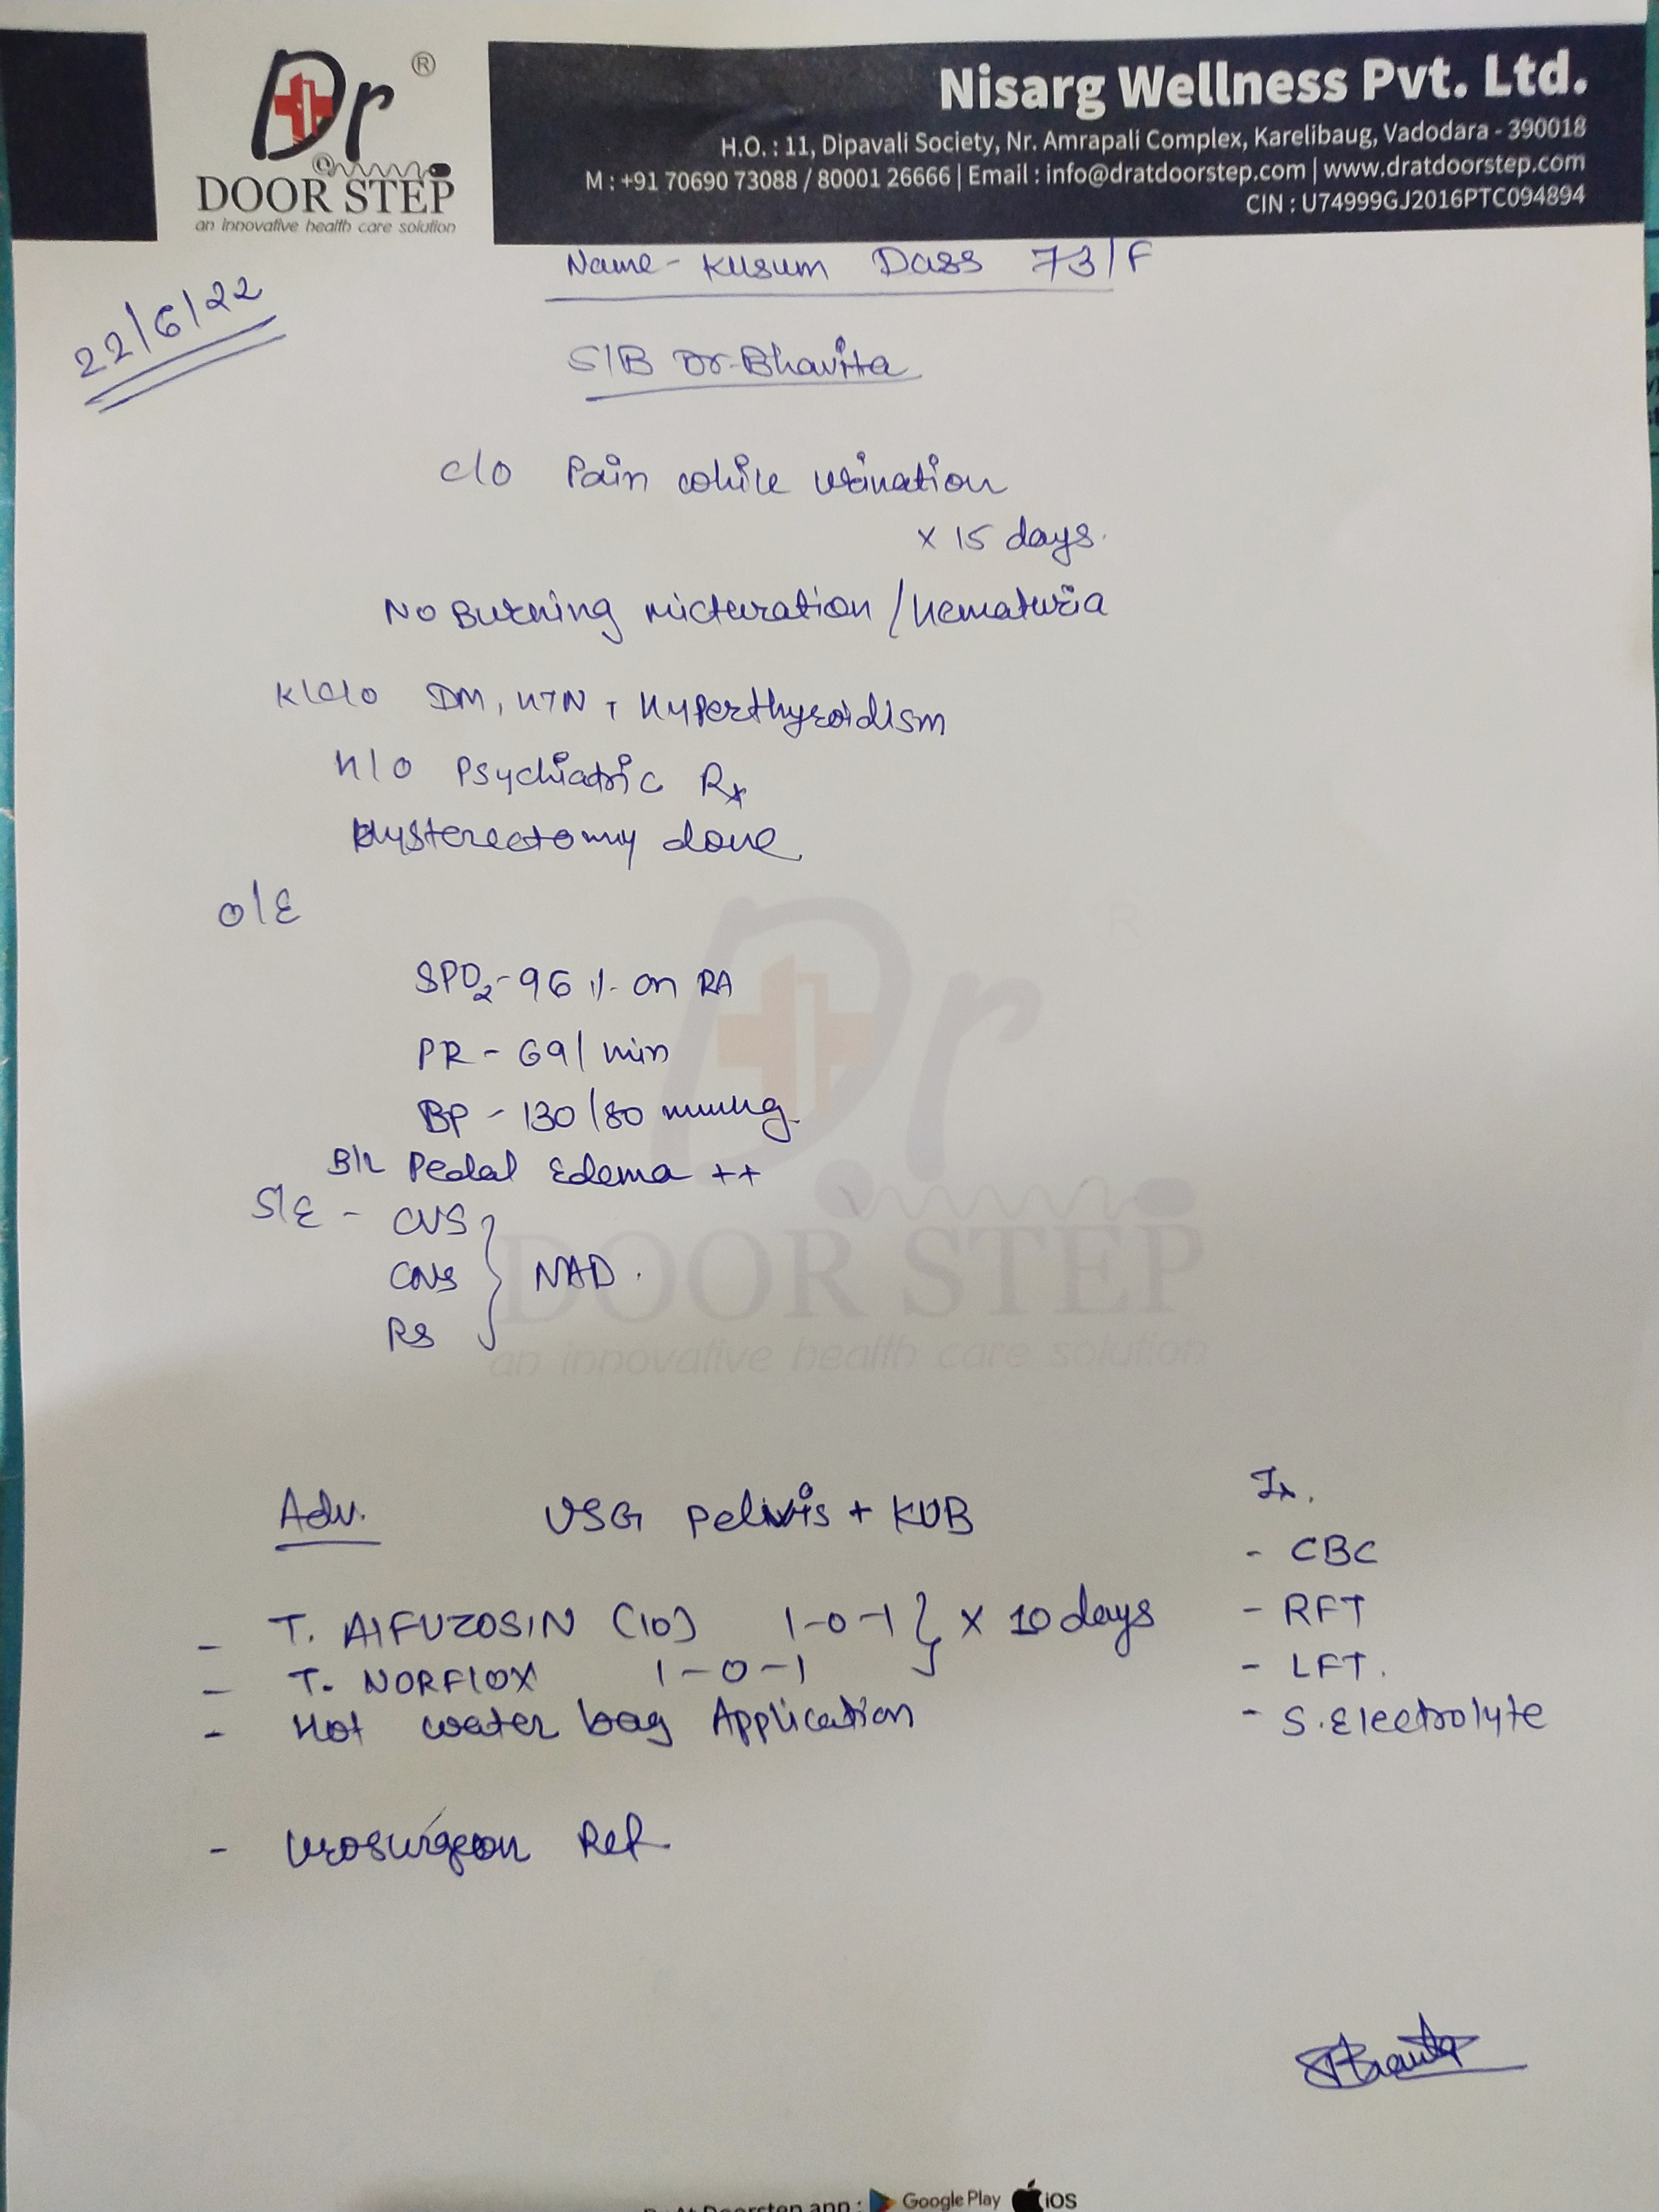 Dr ®
@
DOOR STEP
an innovative health care solution
Nisarg Wellness Pvt. Ltd.
H.O. : 11, Dipavali Society, Nr. Amrapali Complex, Karelibaug, Vadodara - 390018
M : +91 70690 73088 / 80001 26666 | Email : info@dratdoorstep.com | www.dratdoorstep.com
CIN : U74999GJ2016PTC094894
Name - Kusum Dass 73/F
22/6/22
S/B Dr. Bhavita
c/o Pain while urination
x 15 days.
No Burning micturation / Hematuria
K/C/o DM, HTN, Hyperthyroidism
H/O Psychiatric Rx
Hysterectomy done
O/E
SPO2 - 96 % on RA
PR - 69/ min
BP - 130/80 mmHg
B/L Pedal Edema ++
S/E - CVS
CNS } NAD.
RS
Dr ®
DOOR STEP
an innovative health care solution
Adv. USG pelivis + KUB
- T. AlFUZOSIN (10) 1-0-1 } x 10 days
- T. NORFlOX 1-0-1
- Hot water bag Application
- Urosurgeon Ref
Ix.
- CBC
- RFT
- LFT.
- S. Electrolyte
Google Play iOS